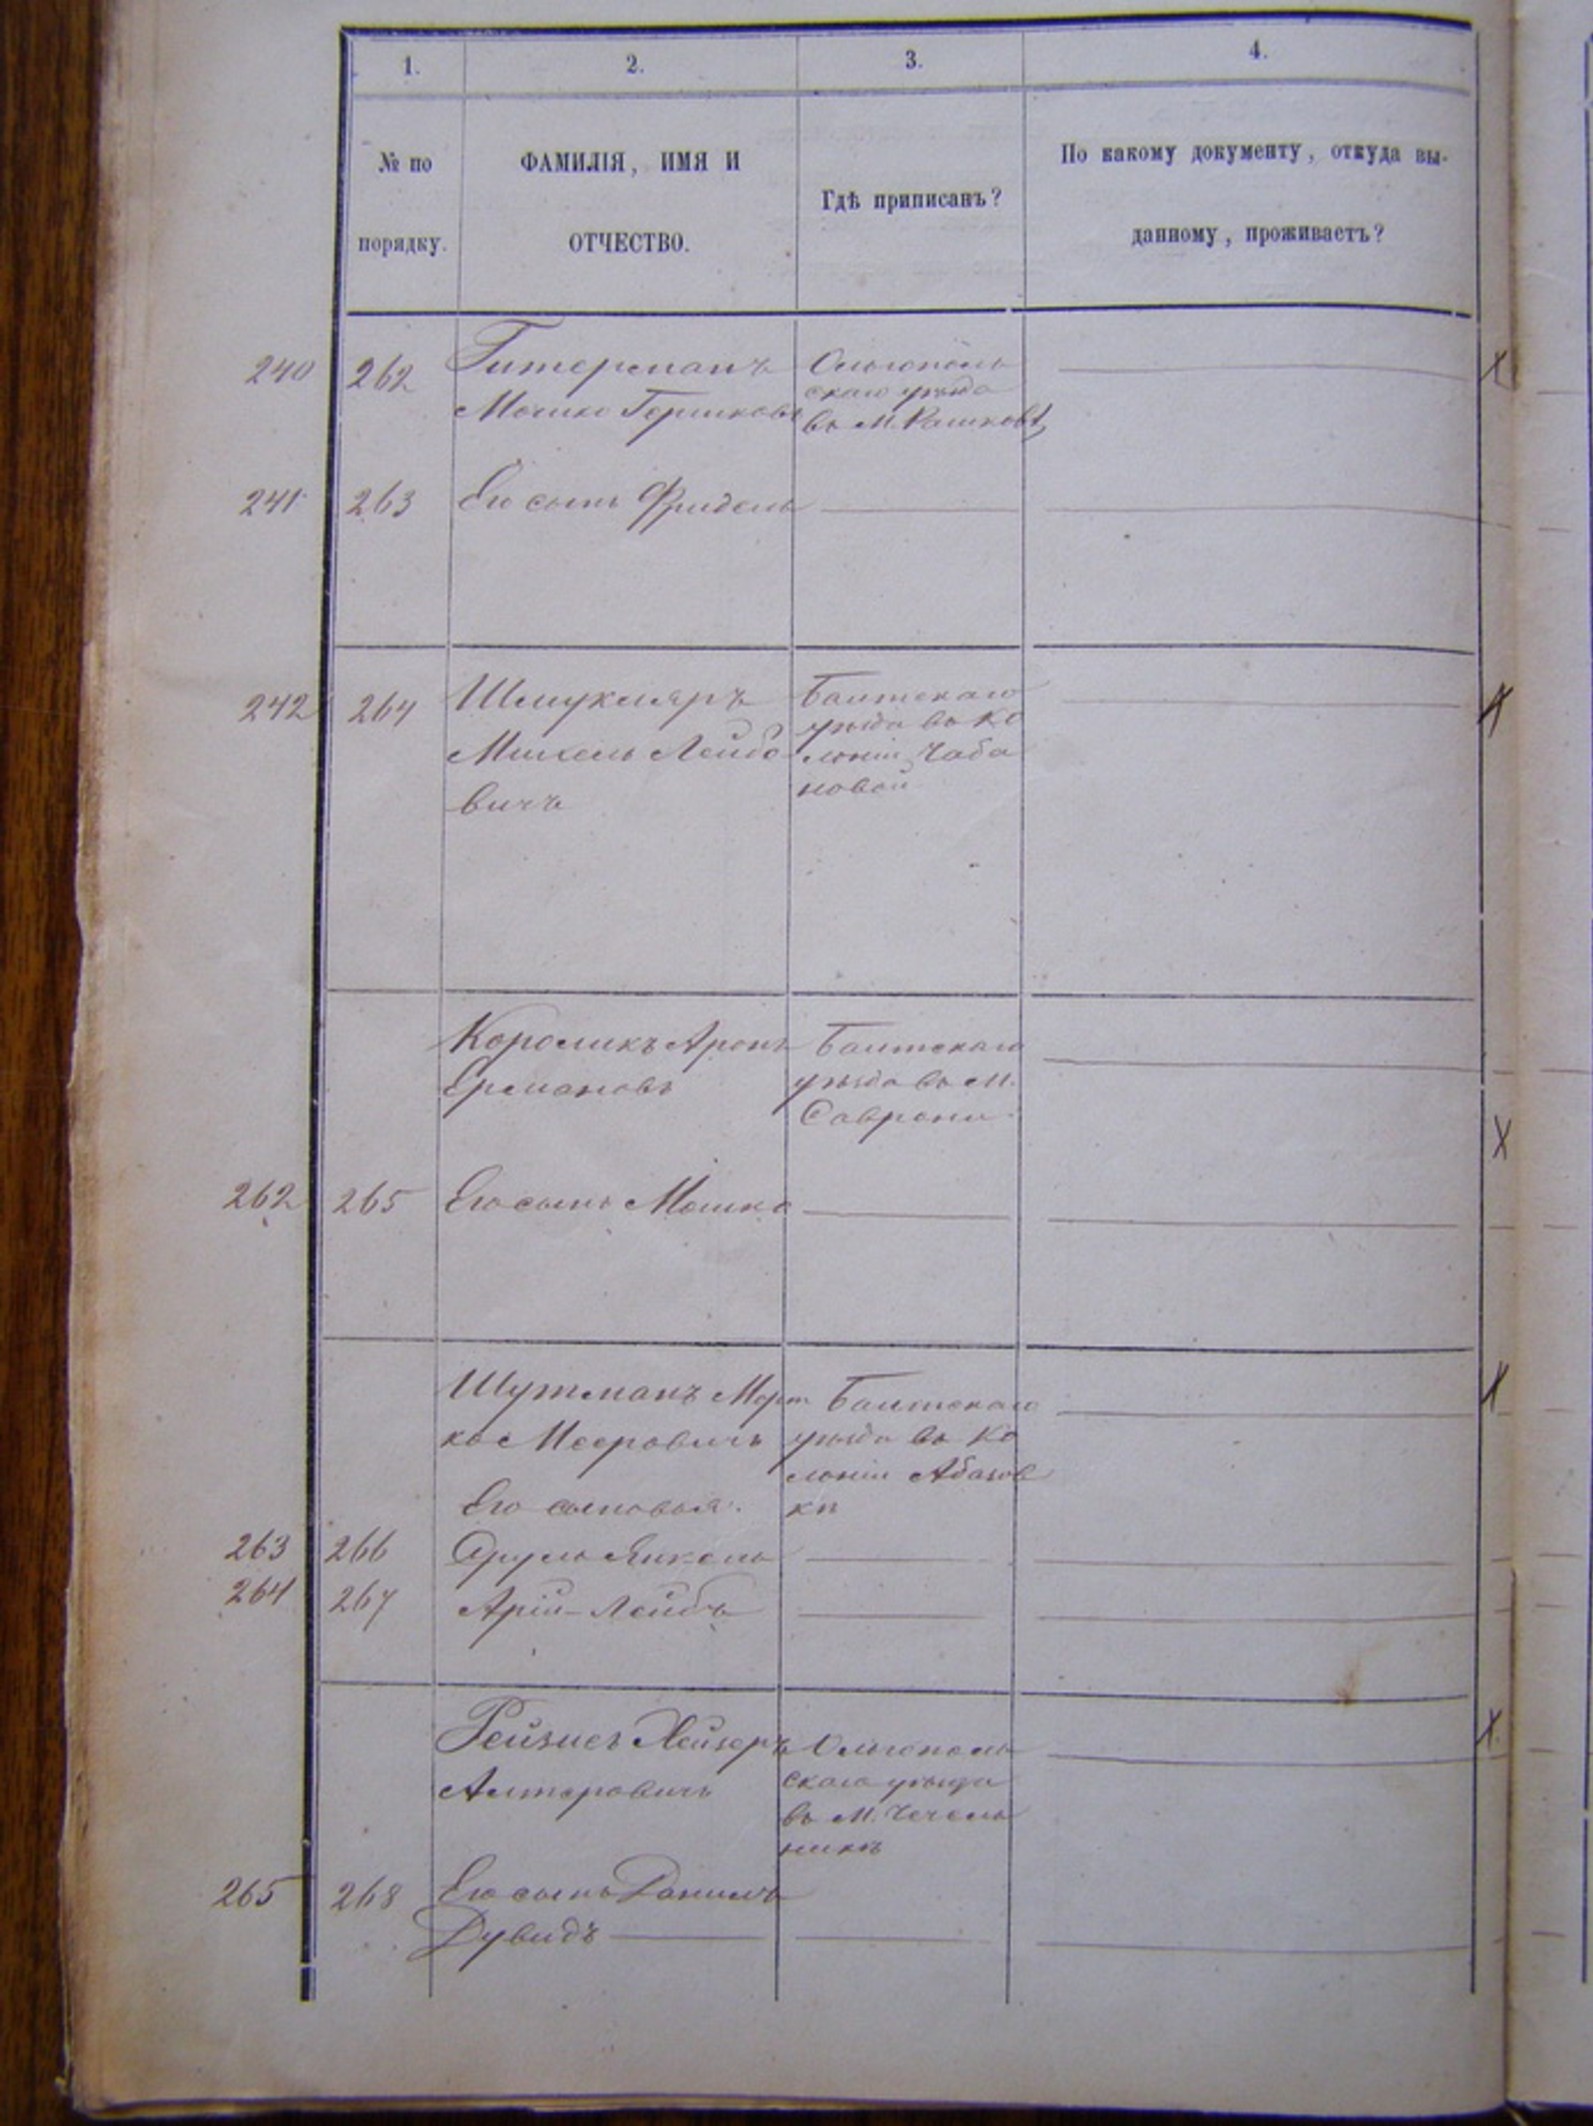 1. 2. 3. 4.
№ по порядку.
ФАМИЛІЯ, ИМЯ И
ОТЧЕСТВО.
Гдѣ приписанъ?
По какому документу, откуда вы-
данному, проживаетъ?
240 262 Гитерманъ
Мошко Гершковъ
Ольгополь
скаго уѣзда
въ М. Рашковѣ
X
241 263 Его сынъ Фридель
242 264 Шмукляръ
Михель Лейбо
вичъ
Балтскаго
уѣзда въ ко
лоніи Чаба
новой
X
Короликъ Аронъ
Ермановъ
Балтскаго
уѣзда въ М.
Саврани
X
262 265 Его сынъ Мошко
ШутманъМорт
ко Мееровичъ
Балтскаго
уѣзда въ Ко
лоніи Абазов
кѣ
X
Его сыновья:
263 266 Сруль Янкель
264 267 Арій-Лейбъ
Рейзисъ Лейзеръ
Алтеровичъ
Ольгополь
скаго уѣзда
въ М. Чечель
никѣ
X
265 268 Его сынъ Данилъ
Дувидъ